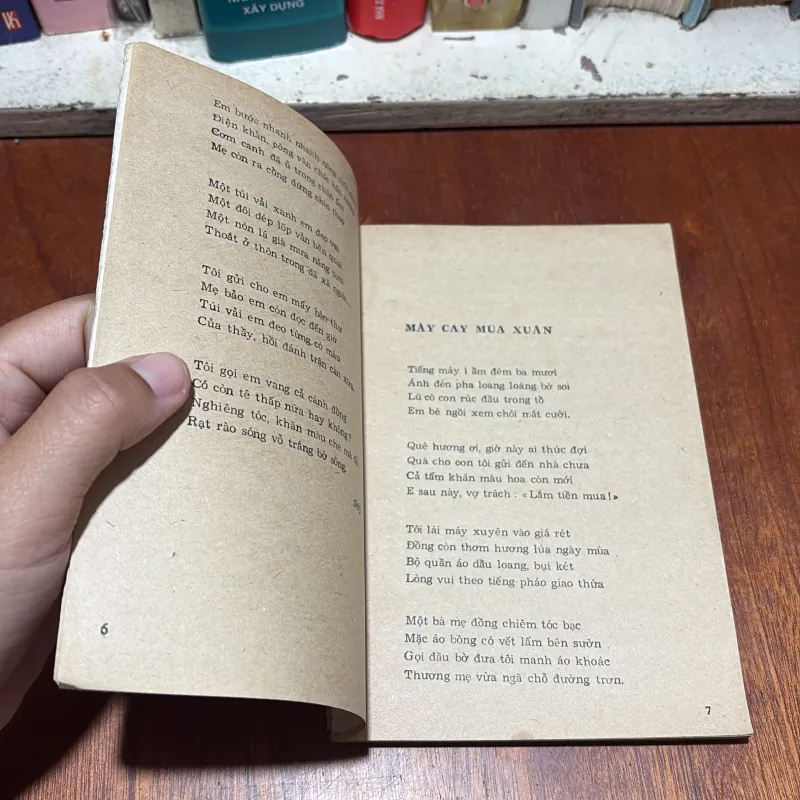 XÂY DỰNG
Em bước nhanh nhanh
Điện khẩn, công văn
Cơm canh đã ủ trong chăn
Mẹ còn ra cổng đứng nhìn
Một túi vải xanh em đeo
Một đôi dép lốp vẫn bền quai
Một nón lá già mưa nắng
Thoắt ở thôn trong đã xã ngoài...
Tôi gửi cho em mấy bận thư
Mẹ bảo em còn đọc đến giờ
Túi vải em đeo từng có máu
Của thầy, hồi đánh trận càn xưa,
Tôi gọi em vang cả cánh đồng
Có còn tê thấp nữa hay không?
Nghiêng tóc, khăn màu che má đỏ
Rạt rào sóng vỗ trắng bờ sông.
6
MÁY CAY MÙA XUÂN
Tiếng máy ì ầm đêm ba mươi
Ánh đèn pha loang loáng bờ soi
Lũ cò con rúc đầu trong tổ
Em bé ngồi xem chói mắt cười.
Quê hương ơi, giờ này ai thức đợi
Quà cho con tôi gửi đến nhà chưa
Cả tấm khăn màu hoa còn mới
E sau này, vợ trách : «Lắm tiền mua!»
Tôi lái máy xuyên vào giá rét
Đồng còn thơm hương lúa ngày mùa
Bộ quần áo dầu loang, bụi két
Lòng vui theo tiếng pháo giao thừa
Một bà mẹ đồng chiêm tóc bạc
Mặc áo bông có vết lấm bên sườn
Gọi đầu bờ đưa tôi manh áo khoác
Thương mẹ vừa ngã chỗ đường trơn.
7